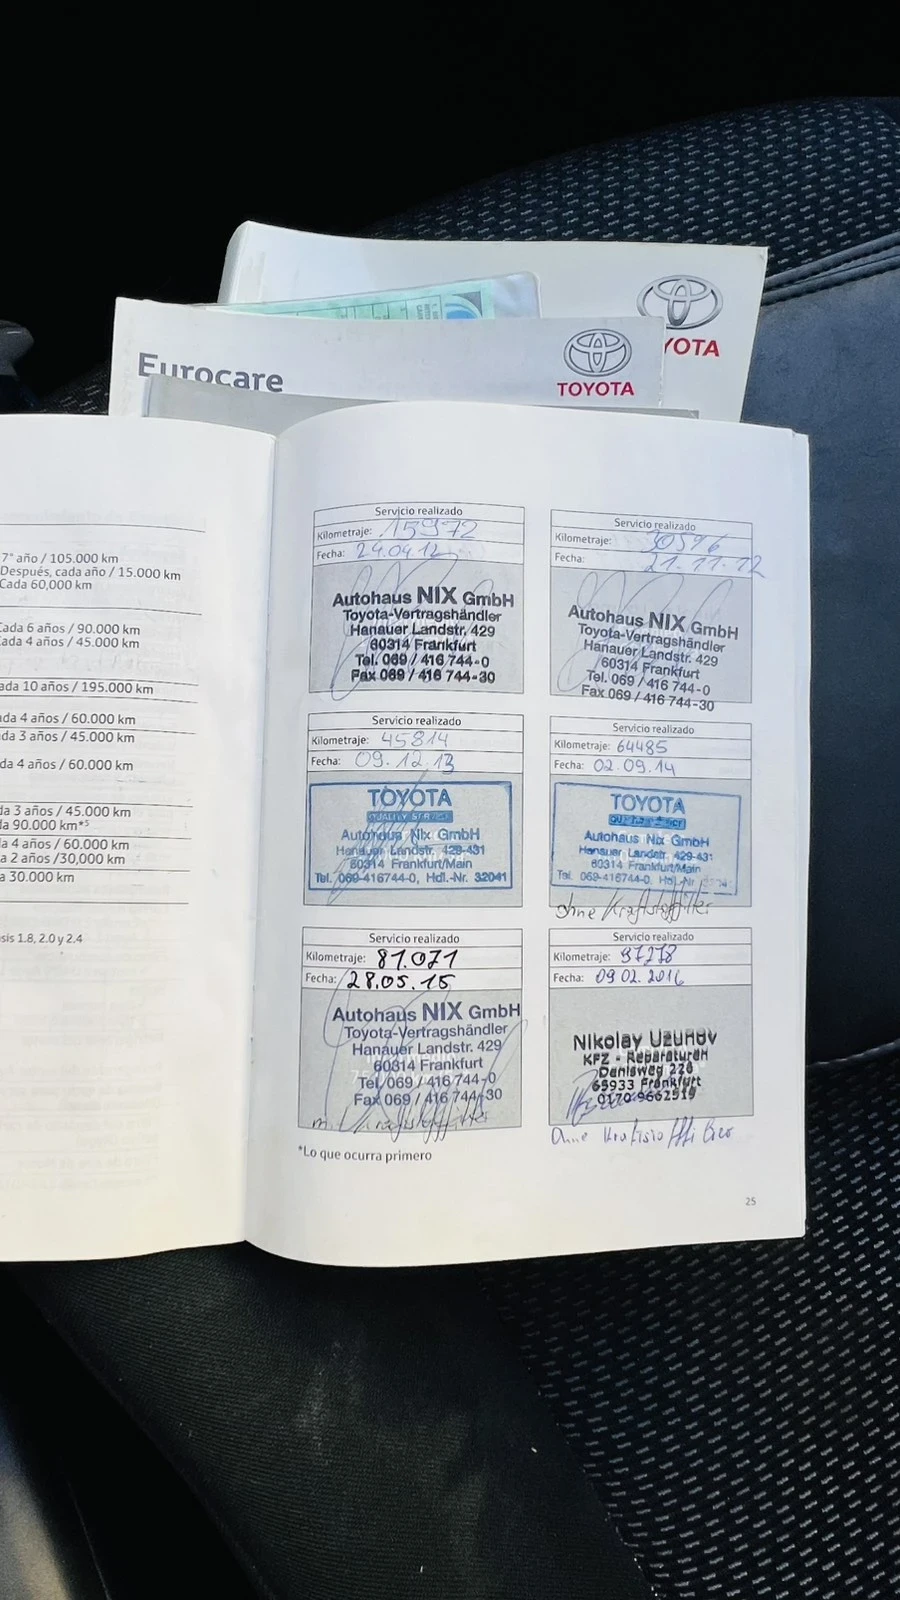 TOYOTA
Eurocare
TOYOTA
7° año / 105.000 km
Después, cada año / 15.000 km
Cada 60,000 km
Cada 6 años / 90.000 km
Cada 4 años / 45.000 km
ada 10 años / 195.000 km
da 4 años / 60.000 km
da 3 años / 45.000 km
da 4 años / 60.000 km
da 3 años / 45.000 km
da 90.000 km*⁵
da 4 años / 60.000 km
a 2 años /30,000 km
a 30.000 km
sis 1.8, 2.0 y 2.4
Servicio realizado
Kilometraje: 15972
Fecha: 24.04.12
Autohaus NIX GmbH
Toyota-Vertragshändler
Hanauer Landstr. 429
60314 Frankfurt
Tel. 069 / 416 744-0
Fax 069 / 416 744-30
Servicio realizado
Kilometraje: 30596
Fecha: 21.11.12
Autohaus NIX GmbH
Toyota-Vertragshändler
Hanauer Landstr. 429
60314 Frankfurt
Tel. 069 / 416 744-0
Fax 069 / 416 744-30
Servicio realizado
Kilometraje: 45814
Fecha: 09.12.13
TOYOTA
QUALITY SERVICE
Autohaus Nix GmbH
Hanauer Landstr. 429-431
60314 Frankfurt/Main
Tel. 069-416744-0, Hdl.-Nr. 32041
Servicio realizado
Kilometraje: 64485
Fecha: 02.09.14
TOYOTA
Autohaus Nix GmbH
Hanauer Landstr. 429-431
60314 Frankfurt/Main
Tel. 069-416744-0, Hdl.-Nr
ohne Kraftstofffilter
Servicio realizado
Kilometraje: 81.071
Fecha: 28.05.15
Autohaus NIX GmbH
Toyota-Vertragshändler
Hanauer Landstr. 429
60314 Frankfurt
Tel. 069 / 416 744-0
Fax 069 / 416 744-30
Kraftstofffilter
Servicio realizado
Kilometraje: 97278
Fecha: 09.02.2016
Nikolay Uzunov
KFZ - Reparaturen
Denisweg 228
65933 Frankfurt
0170 9662519
Ohne Kraftstofffilter
*Lo que ocurra primero
25